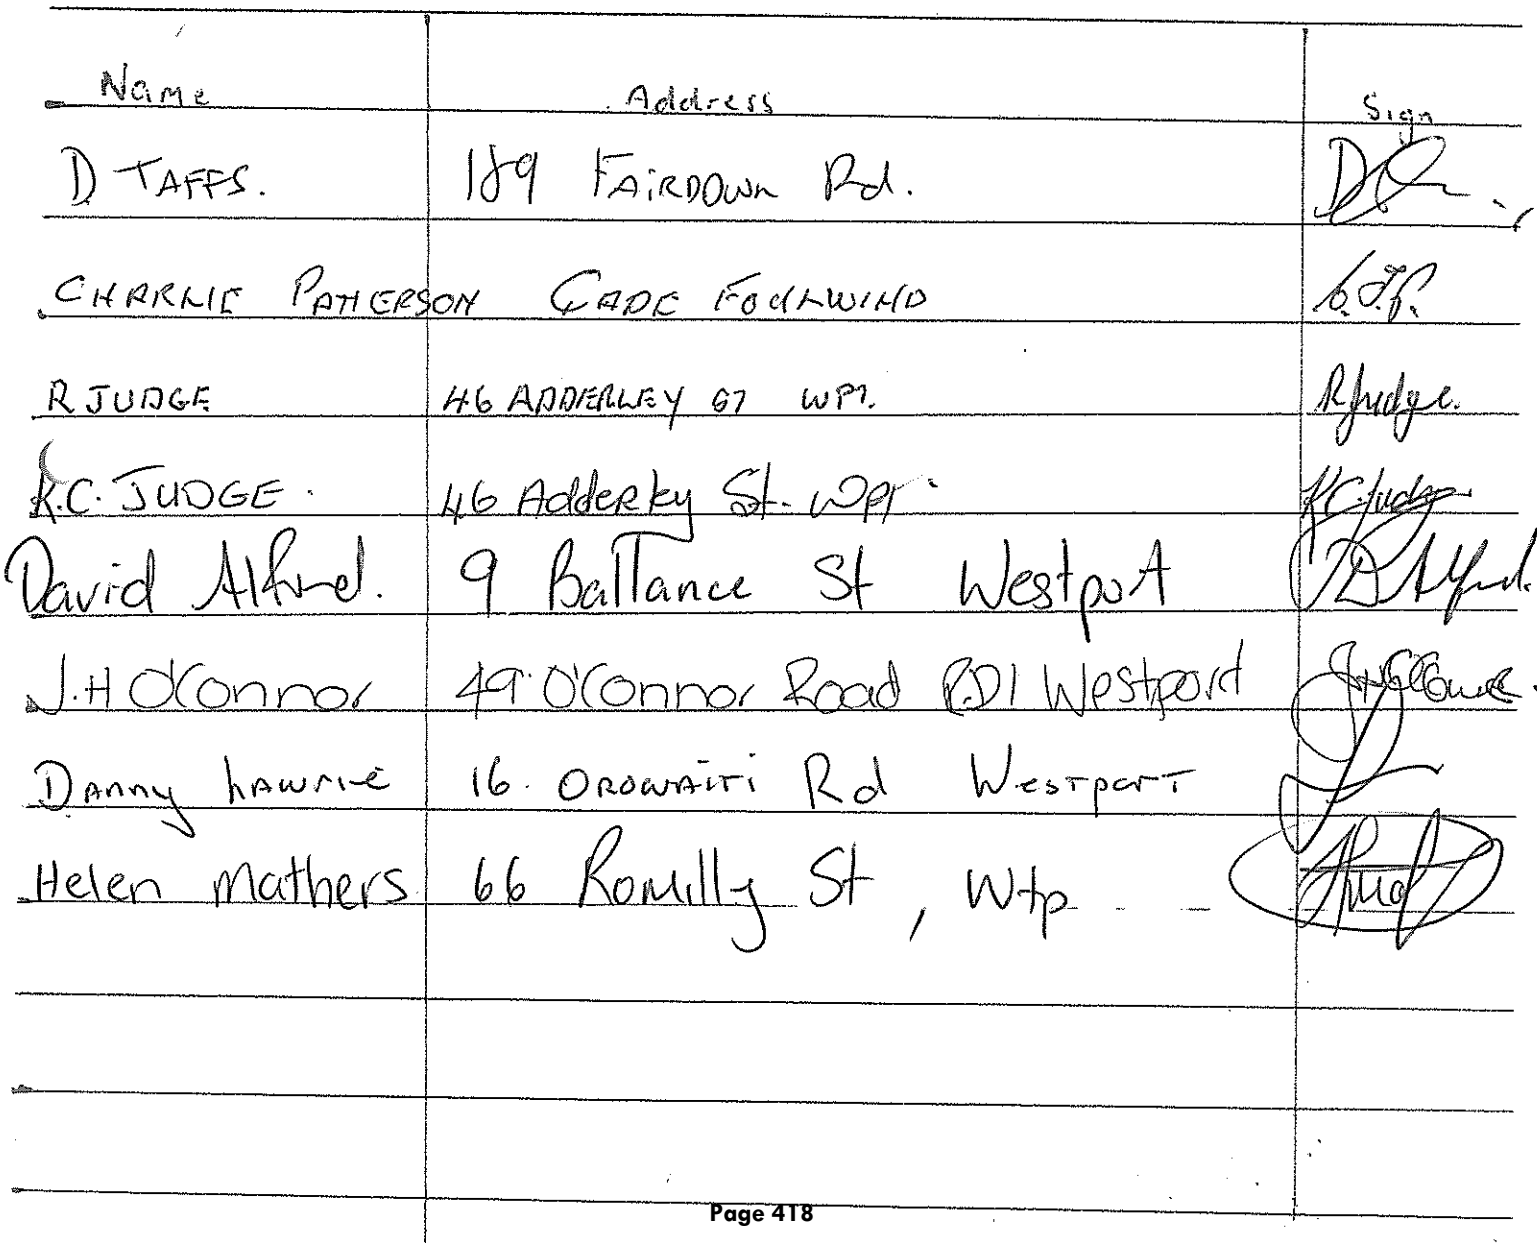 Name Address Sign
D TAFFS. 189 FAIRDOWN Rd.
CHARLIE PATTERSON CAPE FOULWIND
R JUDGE 46 ADDERLEY ST WPT. RJudge.
K.C. JUDGE. 46 Adderley St. Wpt. KCJudge
David Alfred. 9 Ballance St Westport D Alfred.
J.H O'Connor 49 O'Connor Road RD1 Westport
Danny Lawrie 16. OROWAITI Rd Westport
Helen Mathers 66 Romilly St, Wtp
Page 418